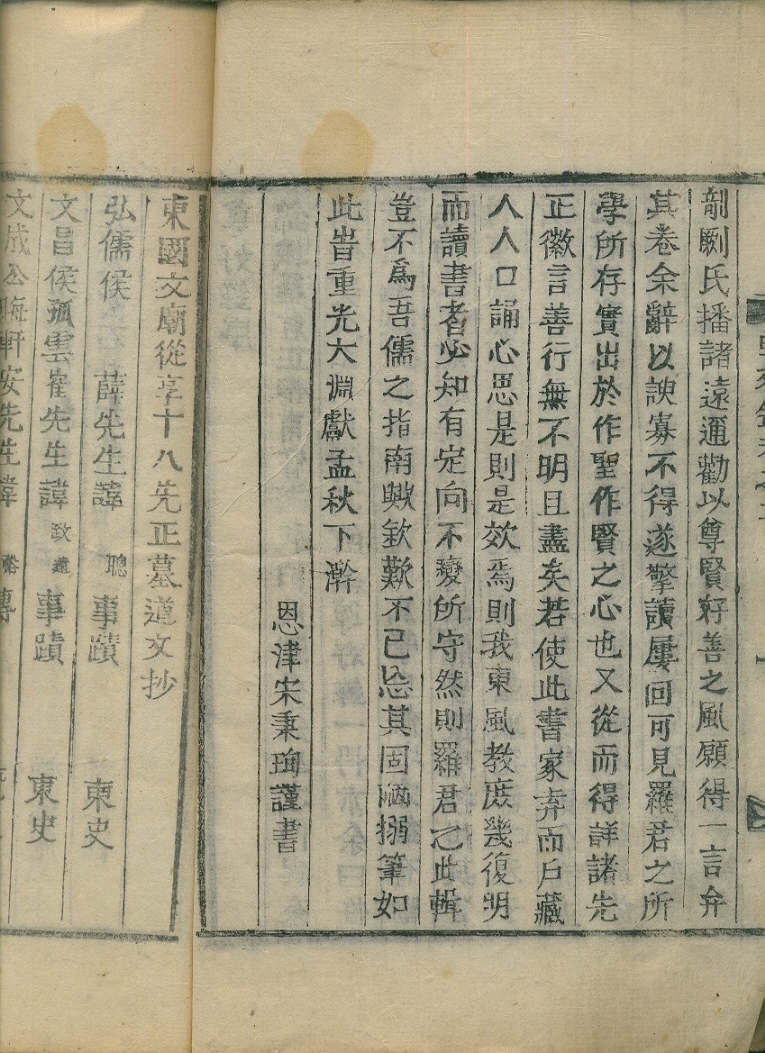 剞劂氏播諸遠邇勸以尊賢好善之風願得一言弁
其卷余辭以諛寡不得遂擎讀屢回可見羅君之所
學所存實出於作聖作賢之心也又從而得詳諸先
正徽言善行無不明且盡矣若使此書家弆而戶藏
人人口誦心思是則是效焉則我東風教庶幾復明
而讀書者必知有定向不變所守然則羅君之此輯
豈不爲吾儒之指南歟欽歎不已忘其固陋搦筆如
此旹重光大淵獻孟秋下澣
恩津宋秉珣謹書
東國文廟從享十八先正墓道文抄
弘儒侯 薛先生諱 聰 事蹟 東史
文昌侯孤雲崔先生諱 致遠 事蹟 東史
文成公晦軒安先生諱 裕 傳